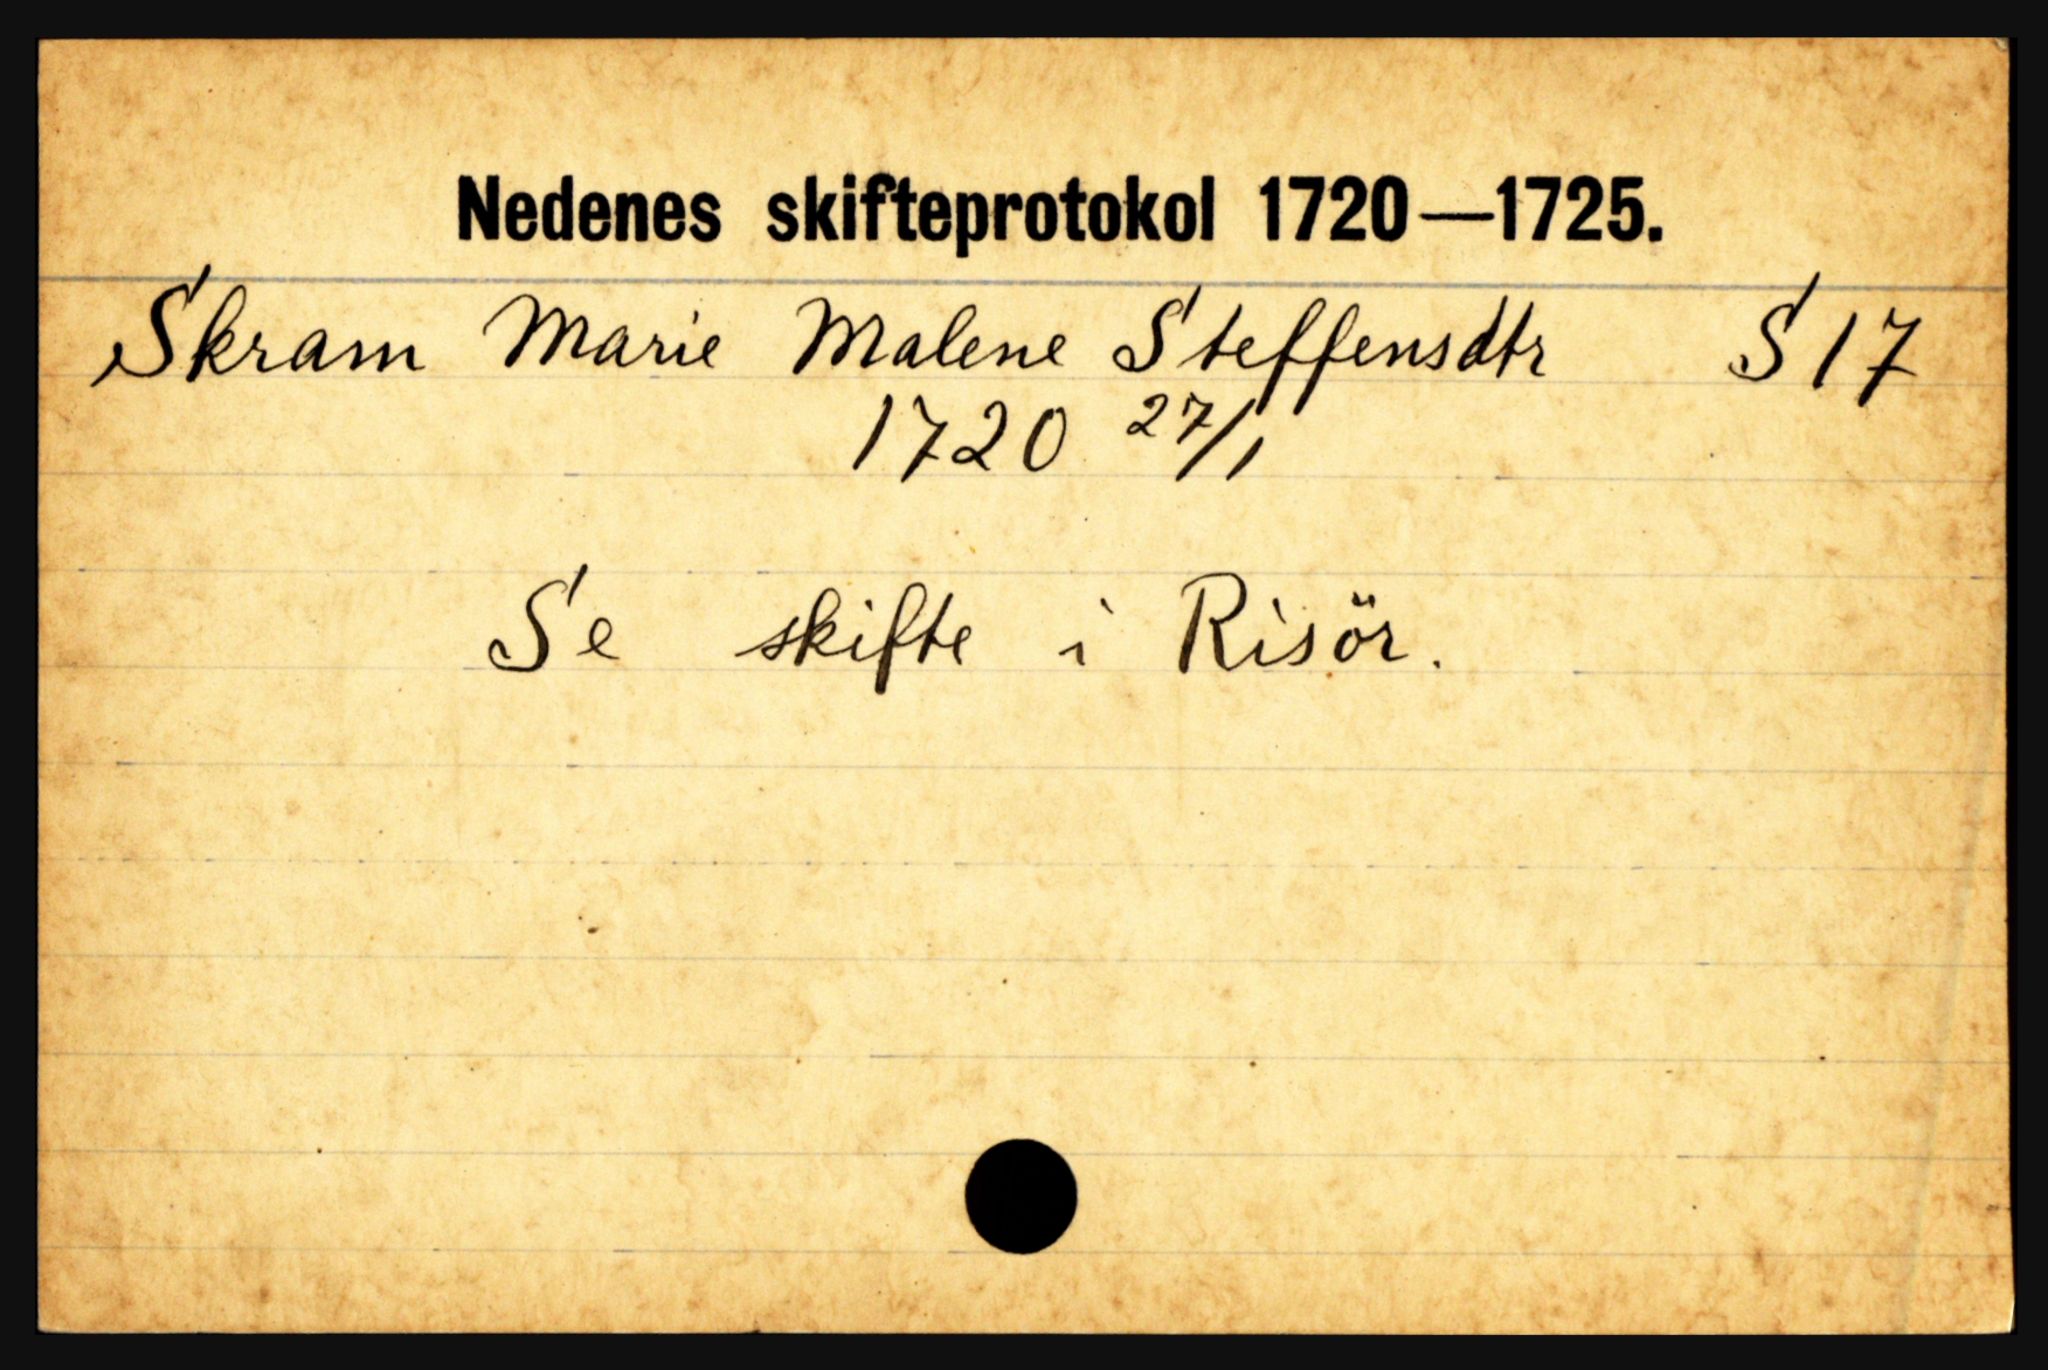 Nedenes skifteprotokol 1720—1725.
Skram Marie Malene Steffensdtr S 17
1720 27/1
Se skifte i Risör.